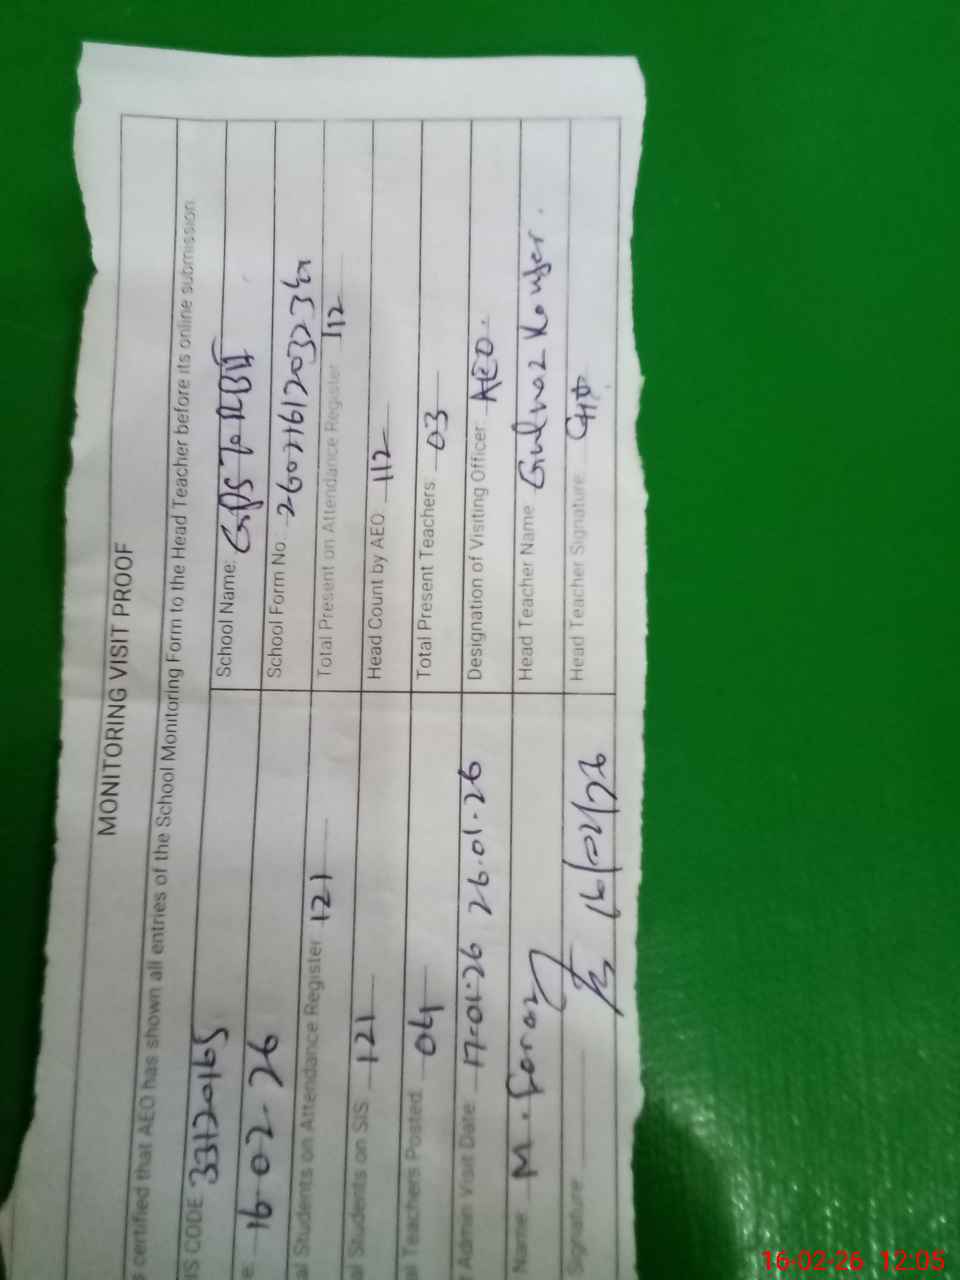 MONITORING VISIT PROOF
certified that AEO has shown all entries of the School Monitoring Form to the Head Teacher before its online submission
IS CODE 33120165 School Name:
e: 16-02-26 School Form No:
al Students on Attendance Register 121 Total Present on Attendance Register 112
al Students on SIS 121 Head Count by AEO 112
al Teachers Posted 04 Total Present Teachers 03
Admin Visit Date 17-01-26 26.01.26 Designation of Visiting Officer AEO.
Name M. Head Teacher Name Gulnaz
Signature 16/02/26 Head Teacher Signature
16-02-26 12:05